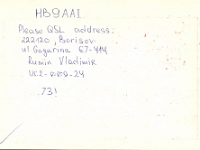 HB9AAI
Please QSL address:
222120, Borisov
ul Gagarina 67-414
Rumin Vladimir
UC2-009-24
73!